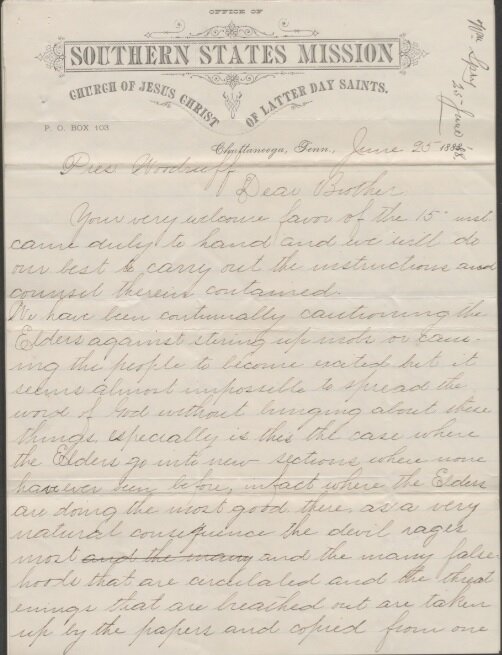 OFFICE OF
SOUTHERN STATES MISSION
CHURCH OF JESUS CHRIST
OF LATTER DAY SAINTS.
P. O. BOX 103
Wm Spry
25 June 88
Chattanooga, Tenn., June 25 1888
Pres Woodruff
Dear Brother
Your very welcome favor of the 15th inst
came duly to hand and we will do
our best to carry out the instructions and
counsel therein contained.
We have been continually cautioning the
Elders against stiring up mobs or caus-
ing the people to become excited but it
seems almost impossible to spread the
word of God without bringing about these
things, especially is this the case where
the Elders go into new sections where none
have ever been before, infact where the Elders
are doing the most good there, as a very
natural consequence the devil rages
most and the many and the many false
hoods that are circulated and the threat
enings that are breathed out are taken
up by the papers and copied from one